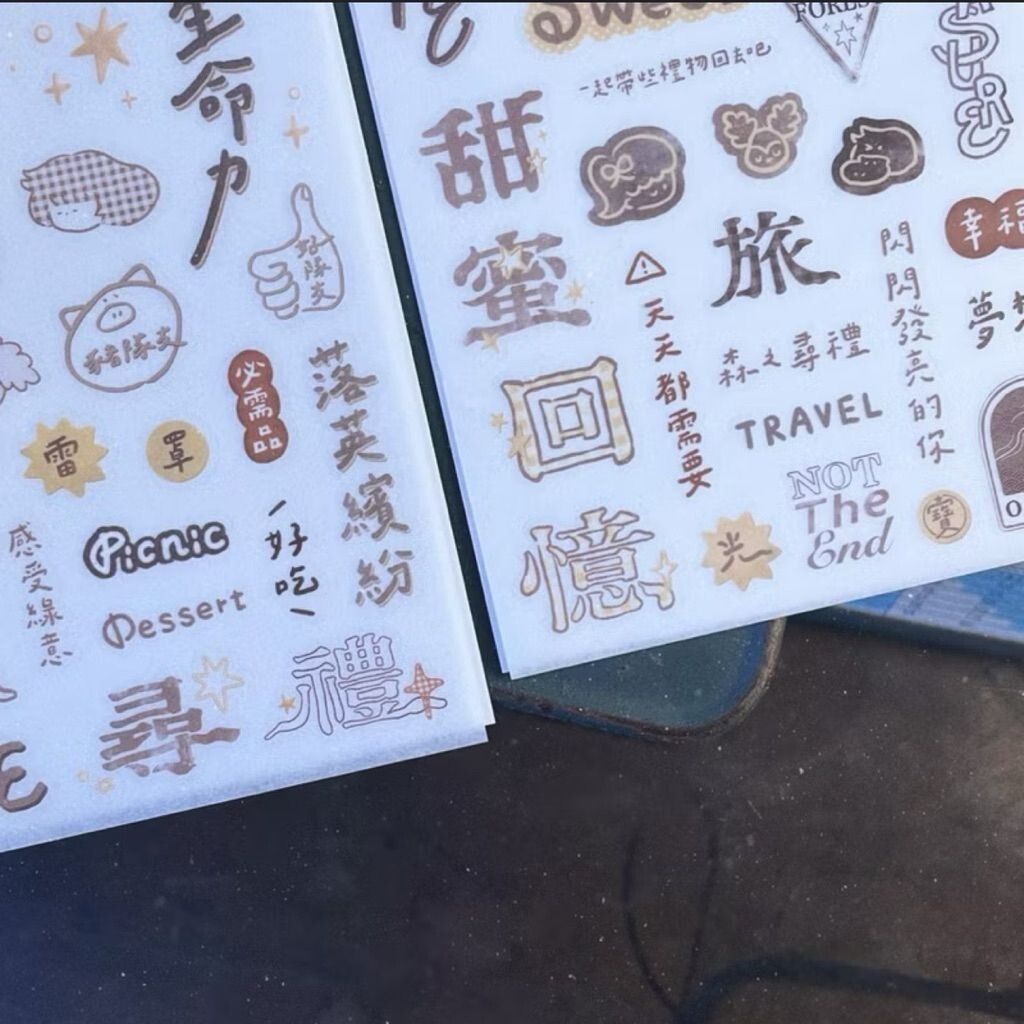 生命力
好隊友
豬隊友
必需品
落英繽紛
雷
罩
感受綠意
Picnic
好吃
Dessert
尋
禮
E
Sweet
FOREST
一起帶些禮物回去吧
甜
蜜
回
憶
天天都需要
旅
森之尋禮
TRAVEL
閃閃發亮的你
幸福
夢想
NOT
The
End
光
寶